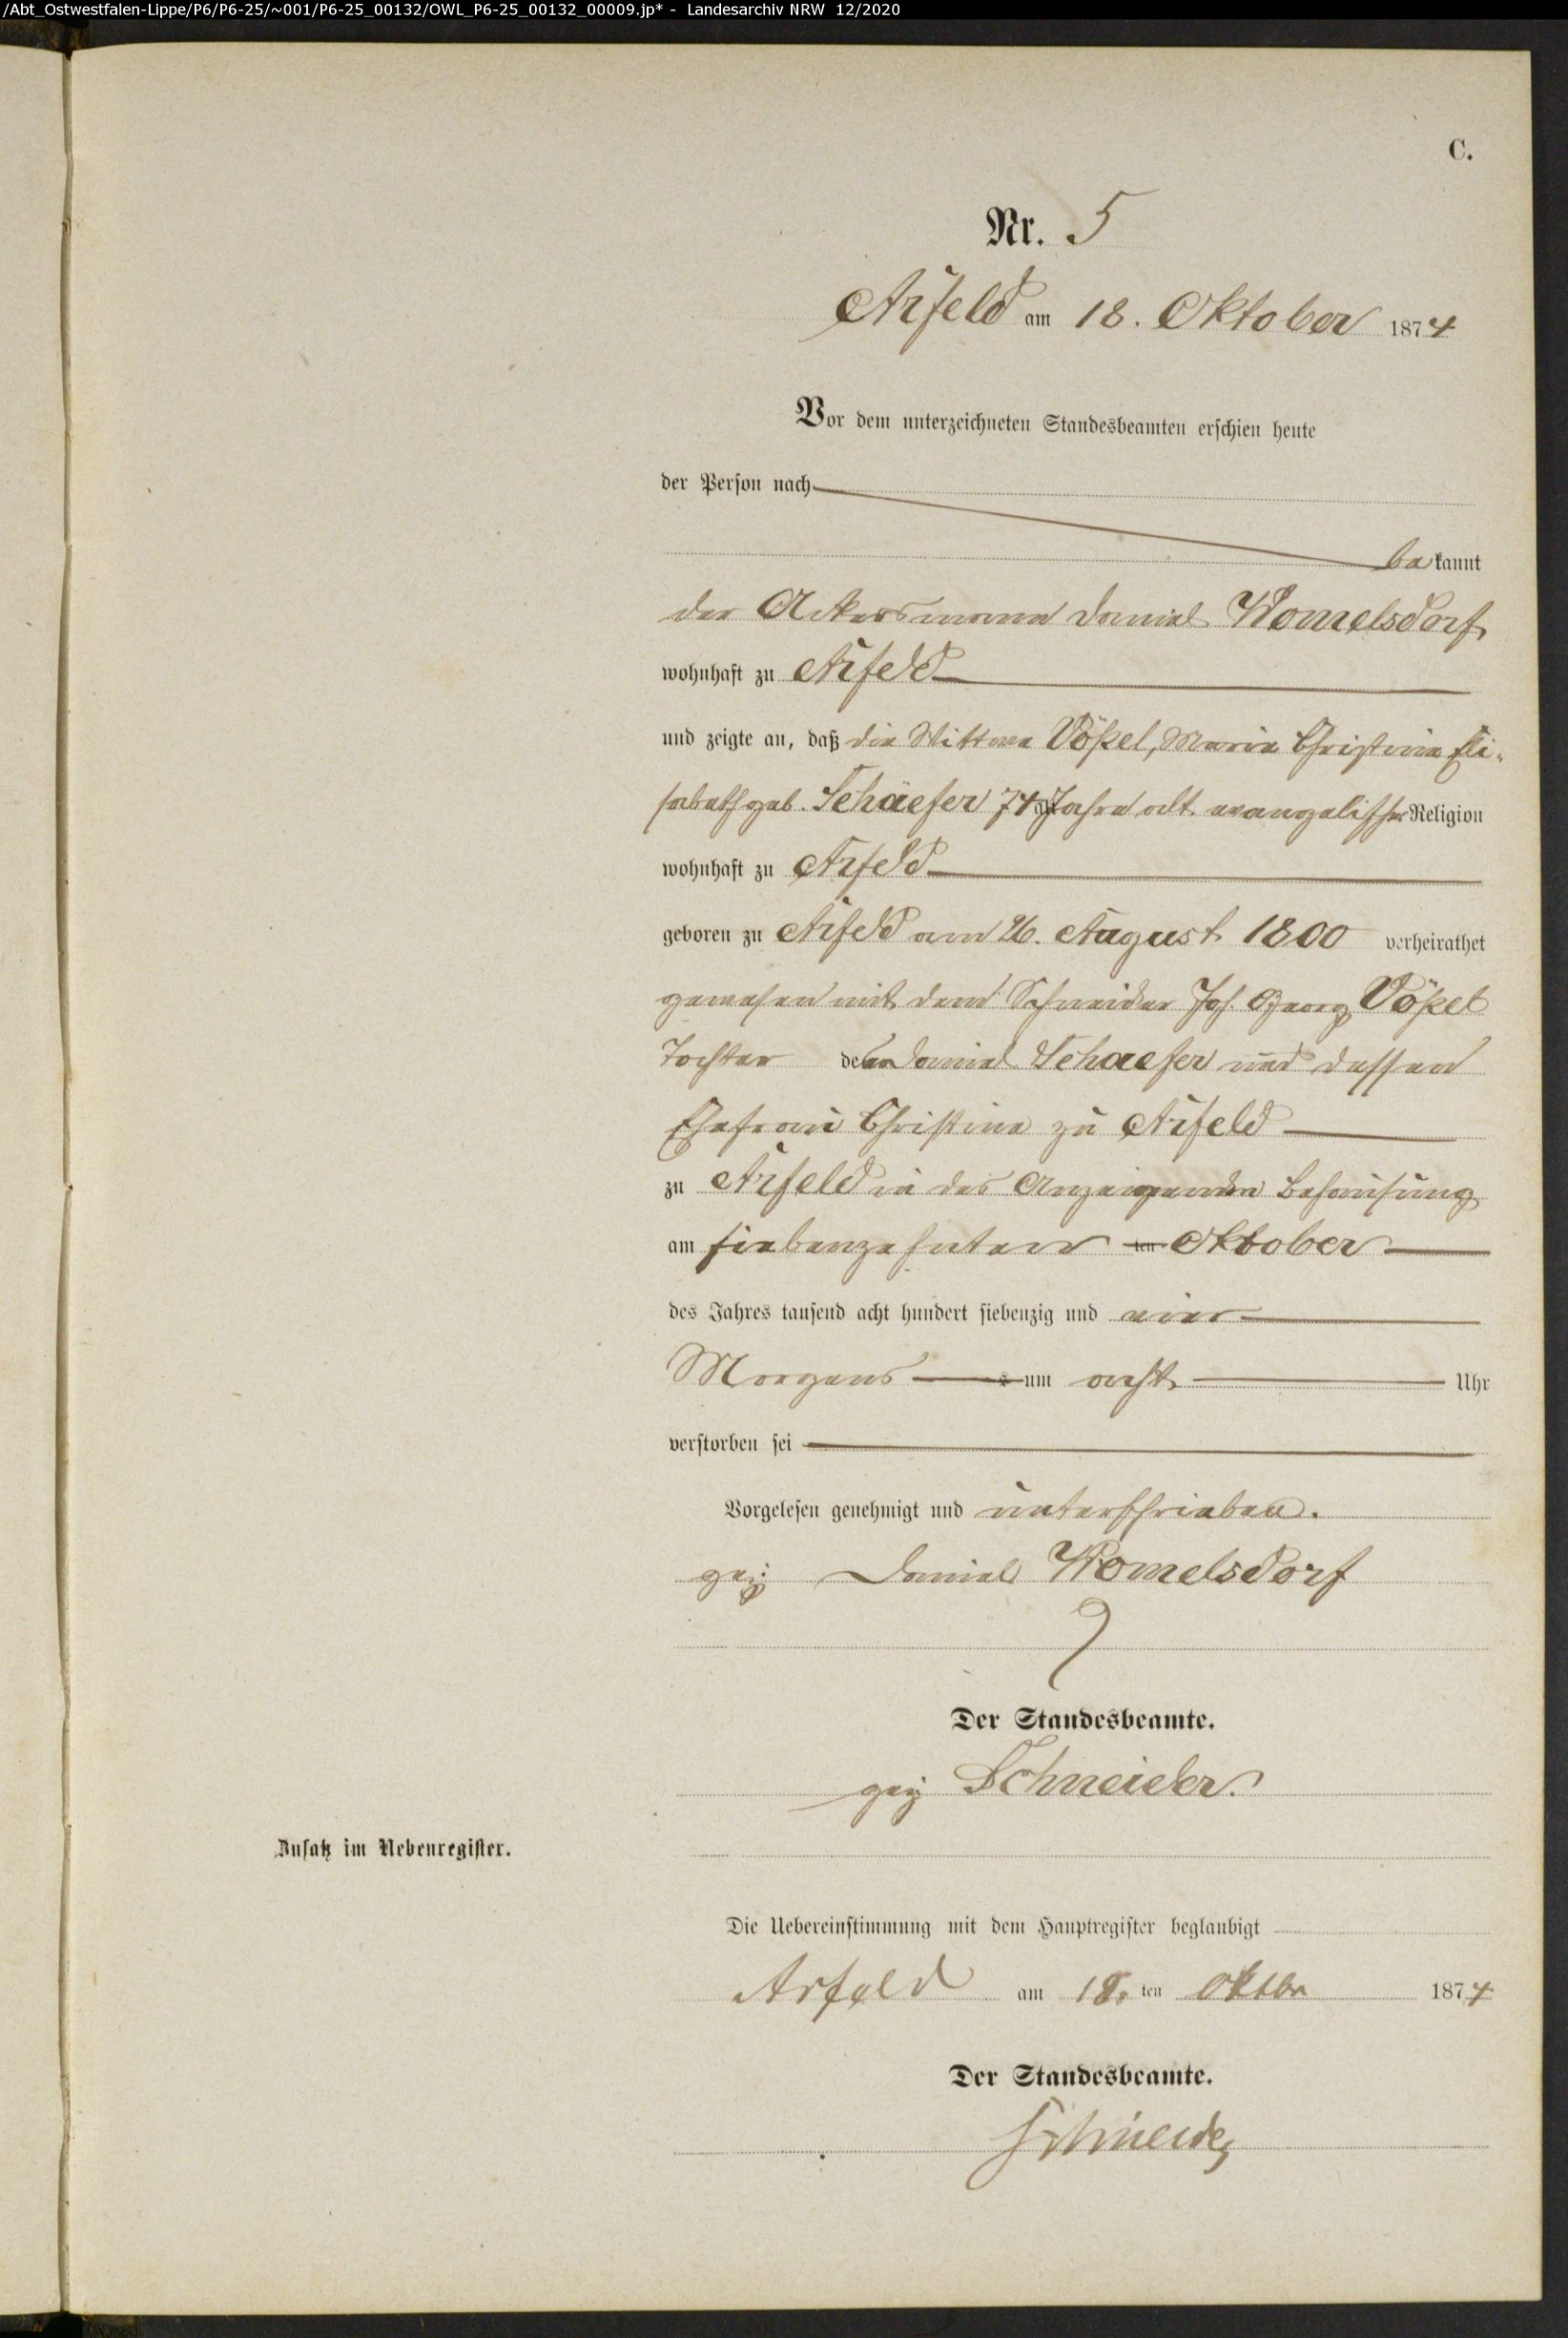 /Abt_Ostwestfalen-Lippe/P6/P6-25/~001/P6-25_00132/OWL_P6-25_00132_00009.jp* - Landesarchiv NRW 12/2020
C.
Nr. 5
Arfeld am 18. Oktober 1874
Vor dem unterzeichneten Standesbeamten erschien heute
der Person nach
bekannt
der Ackersmann Daniel Womelsdorf
wohnhaft zu Arfeld
und zeigte an, daß die Wittwe Vößel, Maria Christina Eli-
sabeth geb. Schäefer 74 Jahre alt evangelischer Religion
wohnhaft zu Arfeld
geboren zu Arfeld am 26. August 1800 verheirathet
gewesen mit dem Schneider Joh. Georg Vößel
Tochter des Daniel Schaefer und dessen
Ehefrau Christina zu Arfeld
zu Arfeld in des Anzeigenden Behausung
am siebenzehnten ten Oktober
des Jahres tausend acht hundert siebenzig und vier
Morgens um acht Uhr
verstorben sei
Vorgelesen genehmigt und unterschrieben.
gez: Daniel Womelsdorf
Der Standesbeamte.
gez Schneider.
Zusatz im Nebenregister.
Die Uebereinstimmung mit dem Hauptregister beglaubigt
Arfeld am 18. ten Oktbr 1874
Der Standesbeamte.
Schneider